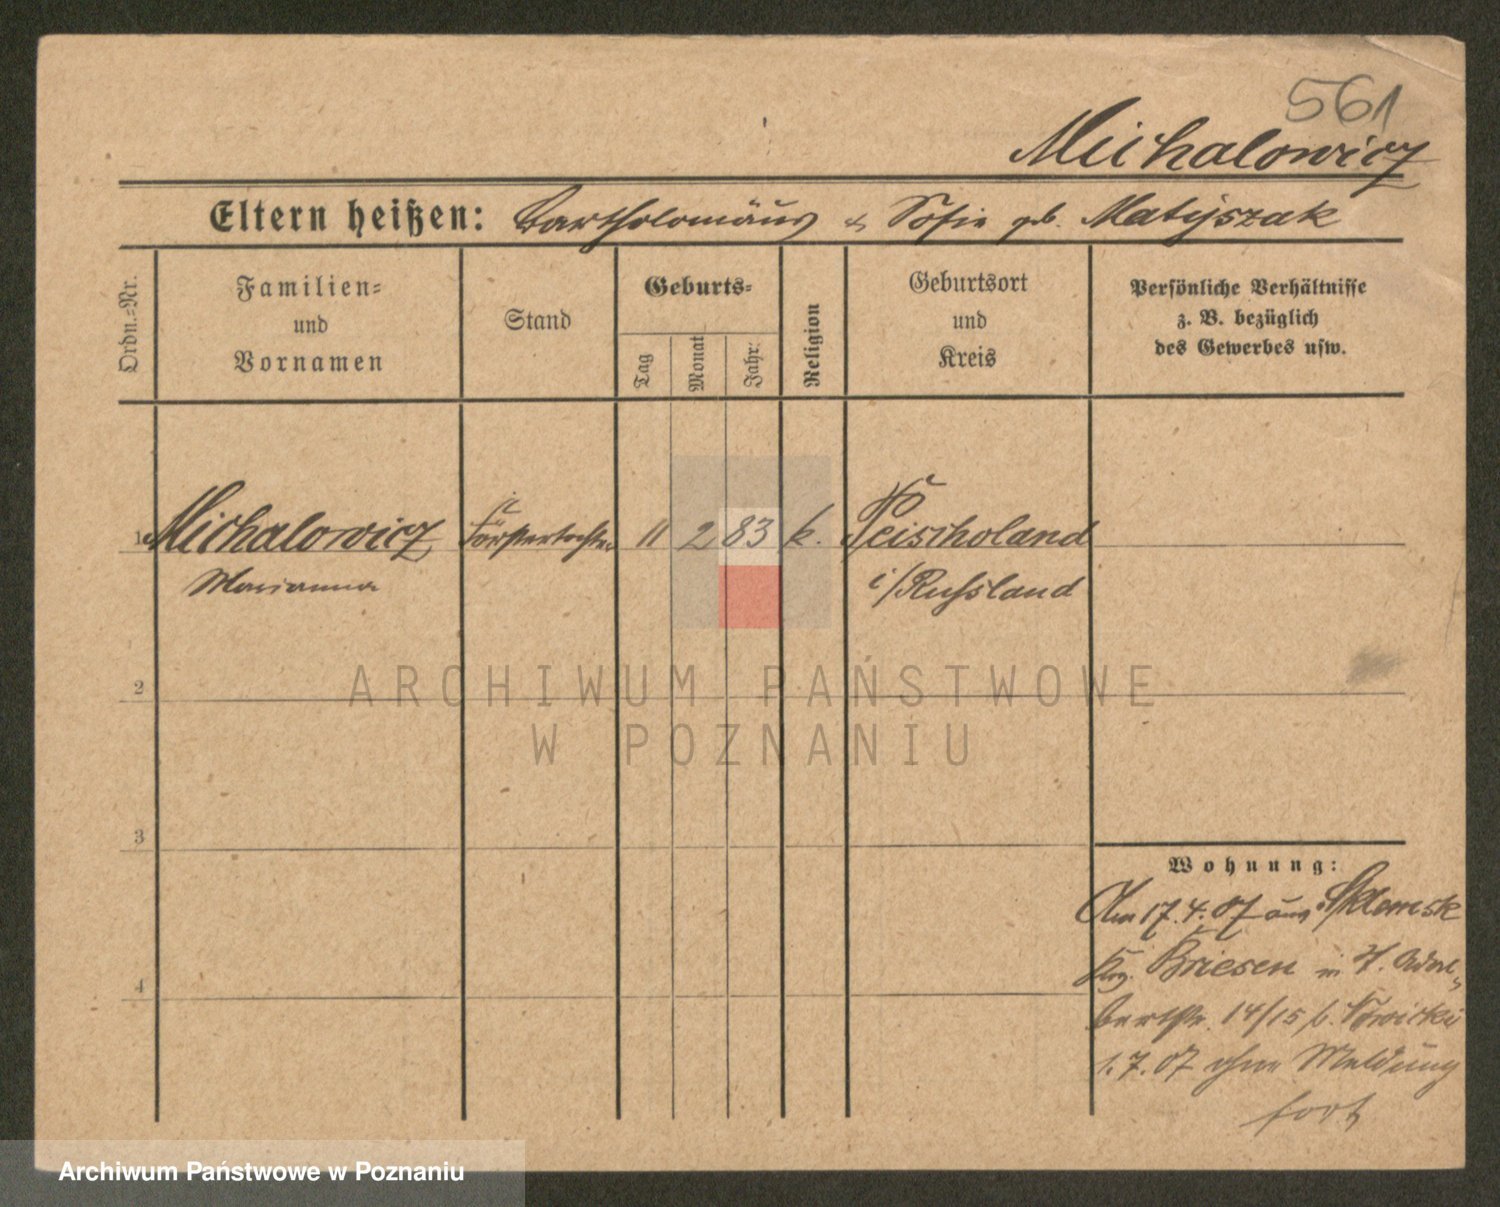 561
Michalowicz
Eltern heißen: Bartholomäus & Sofie geb. Matyszak
Ordn.-Nr.
Familien-
und
Vornamen
Stand
Geburts-
Tag
Monat
Jahr:
Religion
Geburtsort
und
Kreis
Persönliche Verhältnisse
z. B. bezüglich
des Gewerbes usw.
1 Michalowicz Försterstochter 11 2 83 k. Peischoland
Marianna i/Russland
2
3
4
ARCHIWUM PAŃSTWOWE
W POZNANIU
Wohnung:
Am 17.4.07 aus
Briesen in
14/15 b. Nowicki
1.7.07 ohne Meldung
fort
Archiwum Państwowe w Poznaniu